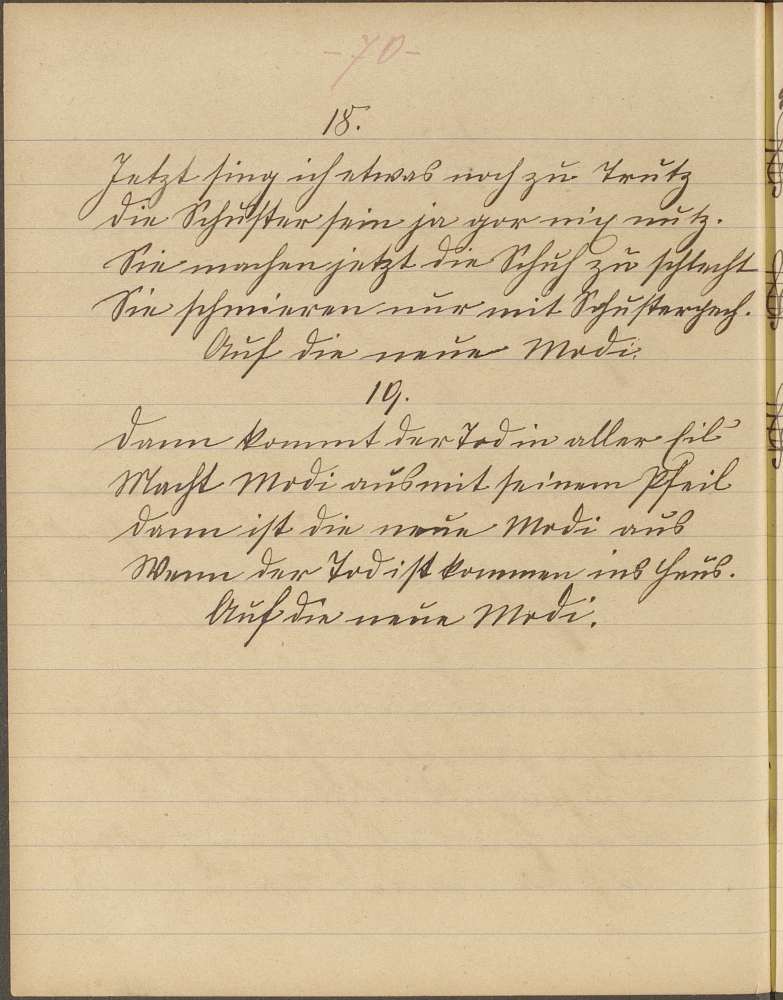 -70-
18.
Jetzt sing ich etwas noch zu Trutz
die Schuster sein ja gor nix nutz.
Sie machen jetzt die Schuh zu schlecht
Sie schmieren nur mit Schusterpech.
Auf die neue Modi.
19.
Dann kommt der Tod in aller Eil
Macht Modi aus mit seinem Pfeil
dann ist die neue Modi aus
Wenn der Tod ist kommen ins Haus.
Auf die neue Modi.